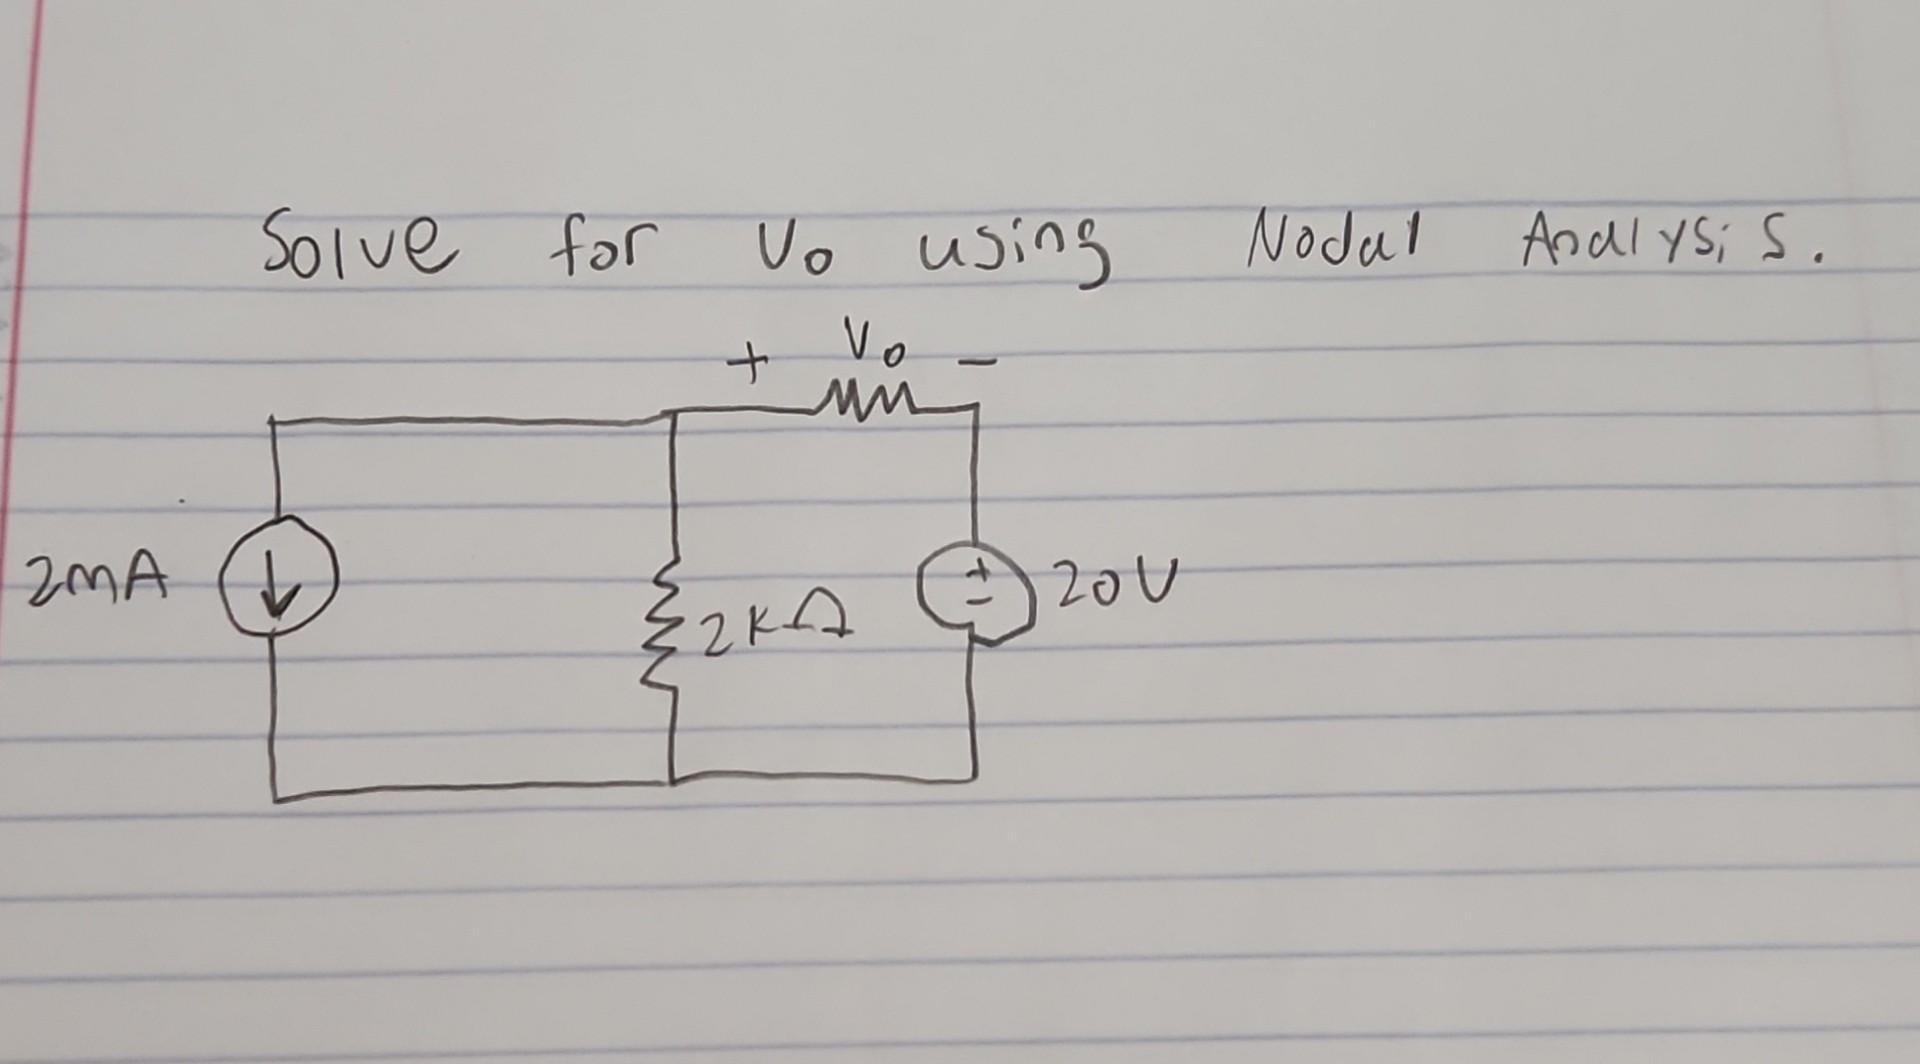 Solve for Vo using Nodal Analysis.
+ Vo -
2mA
2kΩ
+
-
20V